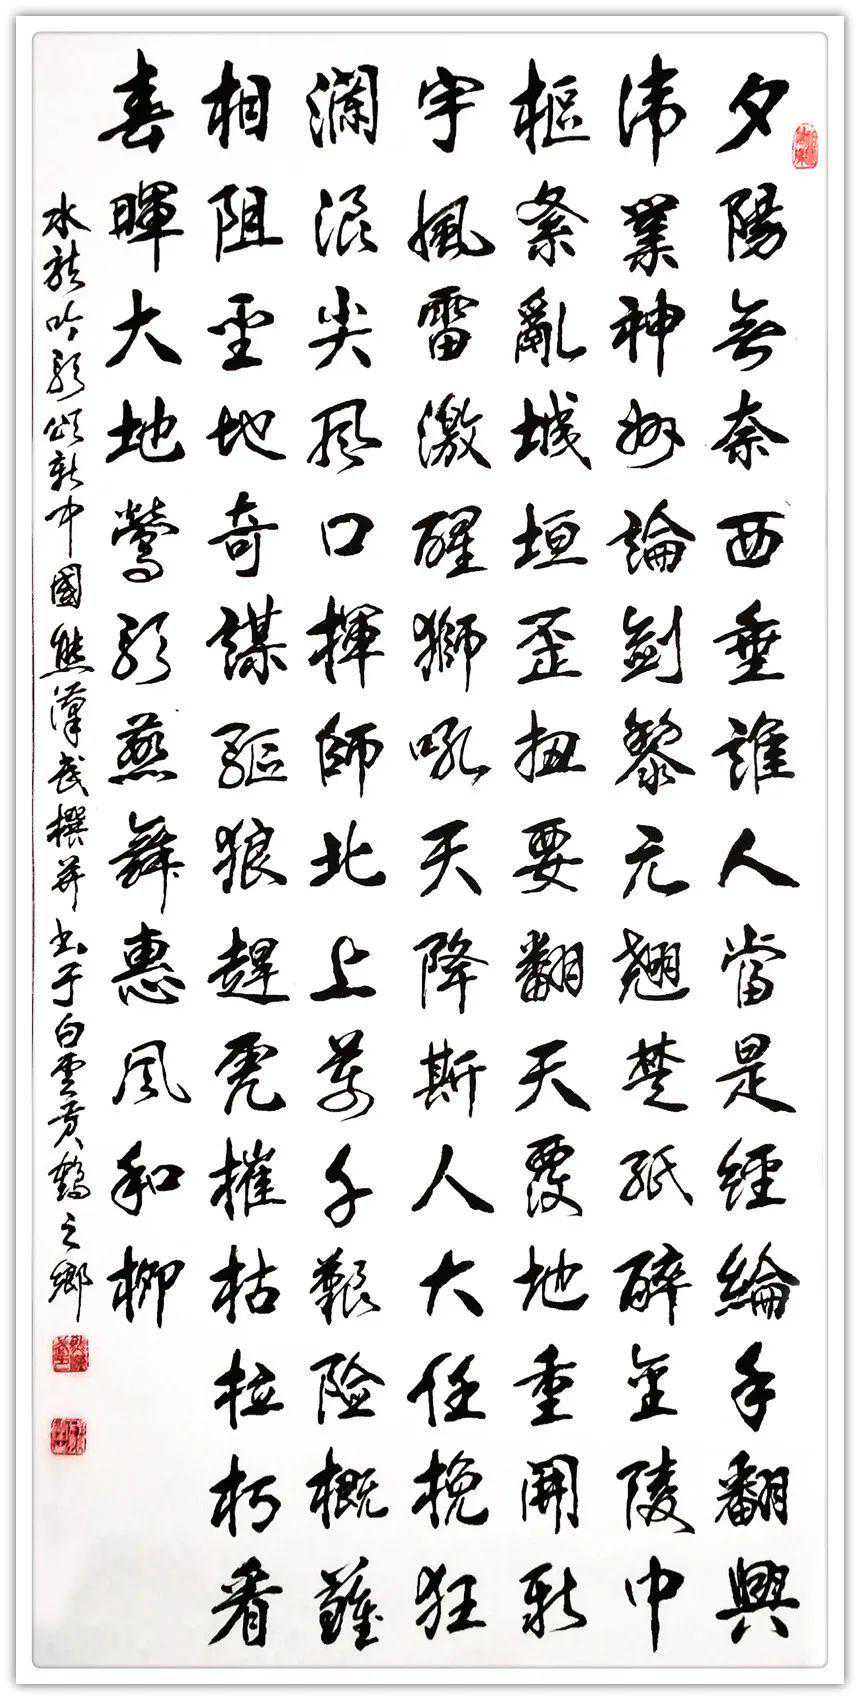 夕陽無奈西垂誰人當是經綸手翻興
伟業神州論劍黎元翹楚紙醉金陵中
樞紊亂城垣歪扭要翻天覆地重開新
宇風雷激醒獅吼天降斯人大任挽狂
瀾浪尖风口揮師北上萬千艱险概難
相阻聖地奇謀驅狼趕虎摧枯拉朽看
春暉大地鶯歌燕舞惠风和柳
水龍吟歌頌新中國熊漢武撰并書于白雲黃鶴之鄉